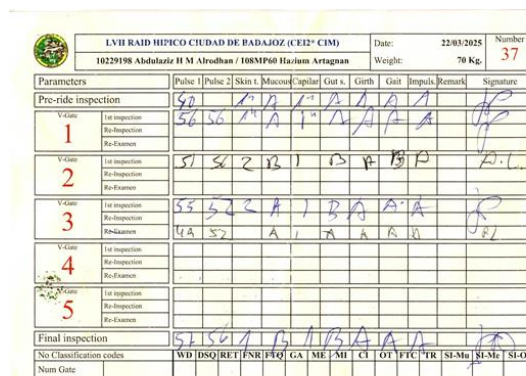 LVII RAID HIPICO CIUDAD DE BADAJOZ (CEI2* CIM) Date: 22/03/2025 Number
10229198 Abdulaziz H M Alrodhan / 108MP60 Hazium Artagnan Weight: 70 Kg. 37
Parameters Pulse 1 Pulse 2 Skin t. Mucous Capilar Gut s. Girth Gait Impuls. Remark Signature
Pre-ride inspection 40 1" A 1" A A A A
V-Gate 1 1st inspection 56 56 1" A 1" A A A A
Re-Inspection
Re-Examen
V-Gate 2 1st inspection 51 56 2 B 1 B A B A A.L.
Re-Inspection
Re-Examen
V-Gate 3 1st inspection 55 52 2 A 1 B A A A
Re-Inspection
Re-Examen 49 52 A 1 A A A A
V-Gate 4 1st inspection
Re-Inspection
Re-Examen
V-Gate 5 1st inspection
Re-Inspection
Re-Examen
Final inspection 57 56 1 B 1 B A A A
No Classification codes WD DSQ RET FNR FTQ GA ME MI CI OT FTC TR SI-Mu SI-Me SI-O
Num Gate